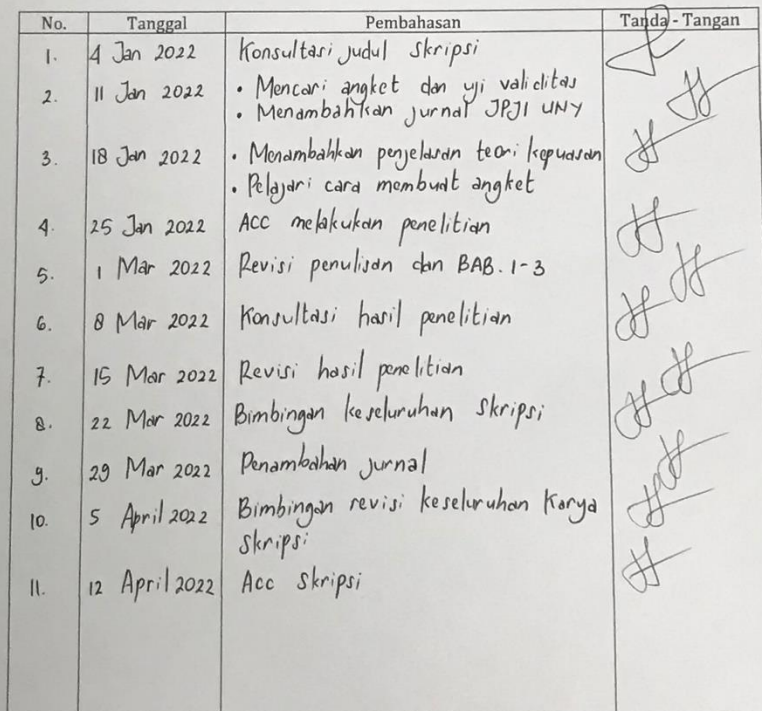 No. Tanggal Pembahasan Tanda - Tangan
1. 4 Jan 2022 Konsultasi judul skripsi
2. 11 Jan 2022 • Mencari angket dan uji validitas
• Menambahkan jurnal JPJI UNY
3. 18 Jan 2022 • Menambahkan penjelasan teori kepuasan
• Pelajari cara membuat angket
4. 25 Jan 2022 ACC melakukan penelitian
5. 1 Mar 2022 Revisi penulisan dan BAB. 1-3
6. 8 Mar 2022 Konsultasi hasil penelitian
7. 15 Mar 2022 Revisi hasil penelitian
8. 22 Mar 2022 Bimbingan keseluruhan skripsi
9. 29 Mar 2022 Penambahan jurnal
10. 5 April 2022 Bimbingan revisi keseluruhan Karya
skripsi
11. 12 April 2022 Acc skripsi